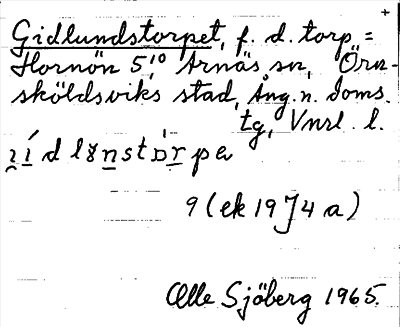 +
Gidlundstorpet, f. d. torp =
Hornön 5¹⁰ Arnäs sn, Örn-
sköldsviks stad, Ång. n. doms.
tg, Vnrl. l.
9 (ek 19 J4 a)
Olle Sjöberg 1965.